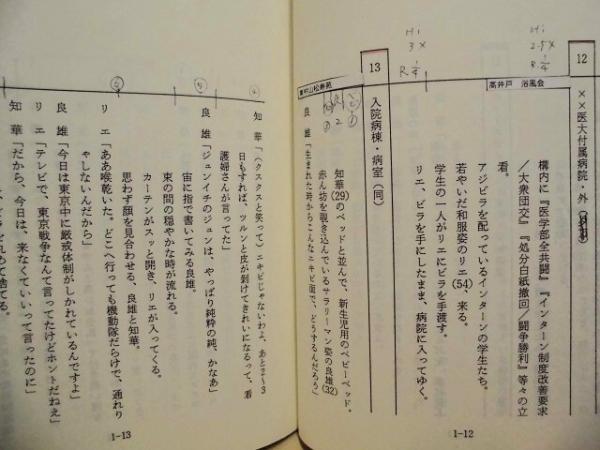 12
××医大付属病院・外
高井戸 浴風会
構内に『医学部全共闘』『インターン制度改善要求
／大衆団交』『処分白紙撤回／闘争勝利』等々の立
看。
アジビラを配っているインターンの学生たち。
若やいだ和服姿のリエ(54)、来る。
学生の一人がリエにビラを手渡す。
リエ、ビラを手にしたまま、病院に入ってゆく。
Hi
2.5×
R.1/4
13
入院病棟・病室（同）
東村山松寿苑
Hi
3×
R 1/4
知華(29)のベッドと並んで、新生児用のベビーベッド。
赤ん坊を覗き込んでいるサラリーマン姿の良雄(32)
良 雄「生まれた時からこんなニキビ面で、どうするんだろう」
1-12
知 華「（クスクスと笑って）ニキビじゃないわよ、あと2〜3
日もすれば、ツルンと皮が剥けてきれいになるって、看
護婦さんが言ってた」
良 雄「ジュンイチのジュンは、やっぱり純粋の純、かなあ」
宙に指で書いてみる良雄。
束の間の穏やかな時が流れる。
カーテンがスッと開き、リエが入ってくる。
思わず顔を見合わせる、良雄と知華。
リ エ「ああ喉乾いた。どこへ行っても機動隊だらけで、通れり
ゃしないんだから」
良 雄「今日は東京中に厳戒体制がしかれているんですよ」
リ エ「テレビで、東京戦争なんて言ってたけどホントだねえ」
知 華「だから、今日は、来なくていいって言ったのに」
1-13